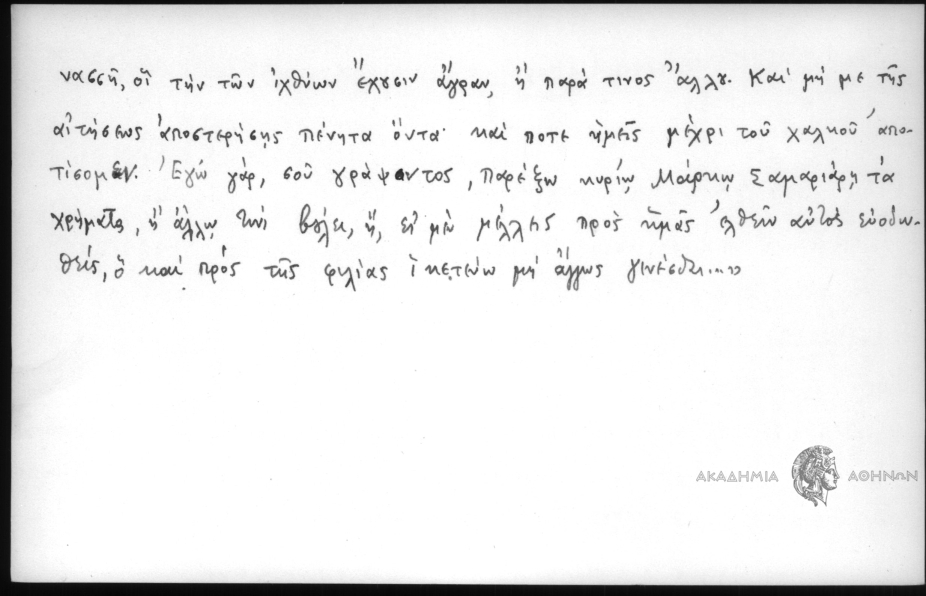 νασσῆ, οἳ τὴν τῶν ἰχθύων ἔχουσιν ἄγραν, ἢ παρά τινος ἄλλου. Καὶ μή με τῆς
αἰτήσεως ἀποστερήσῃς πένητα ὄντα· καί ποτε ἡμεῖς μέχρι τοῦ χαλκοῦ ἀπο-
τίσομεν. Ἐγὼ γάρ, σοῦ γράψαντος, παρέξω κυρίῳ Μάρκῳ Σαμαριάρῃ τὰ
χρήματα, ἢ ἄλλῳ τινὶ βούλει, ἤ, εἰ μὲν μέλλεις πρὸς ἡμᾶς ἐλθεῖν αὐτὸς εὐοδω-
θείς, ὃ καὶ πρὸς τῆς φιλίας ἱκετεύω μὴ ἄλλως γενέσθαι...»
ΑΚΑΔΗΜΙΑ ΑΘΗΝΩΝ